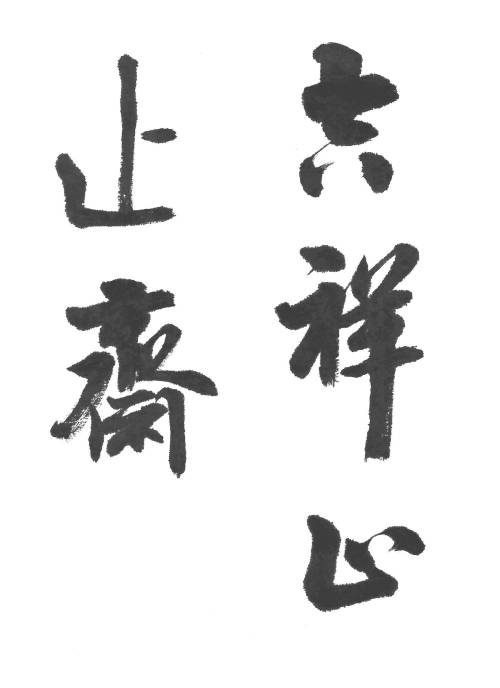 吉祥止
止齋